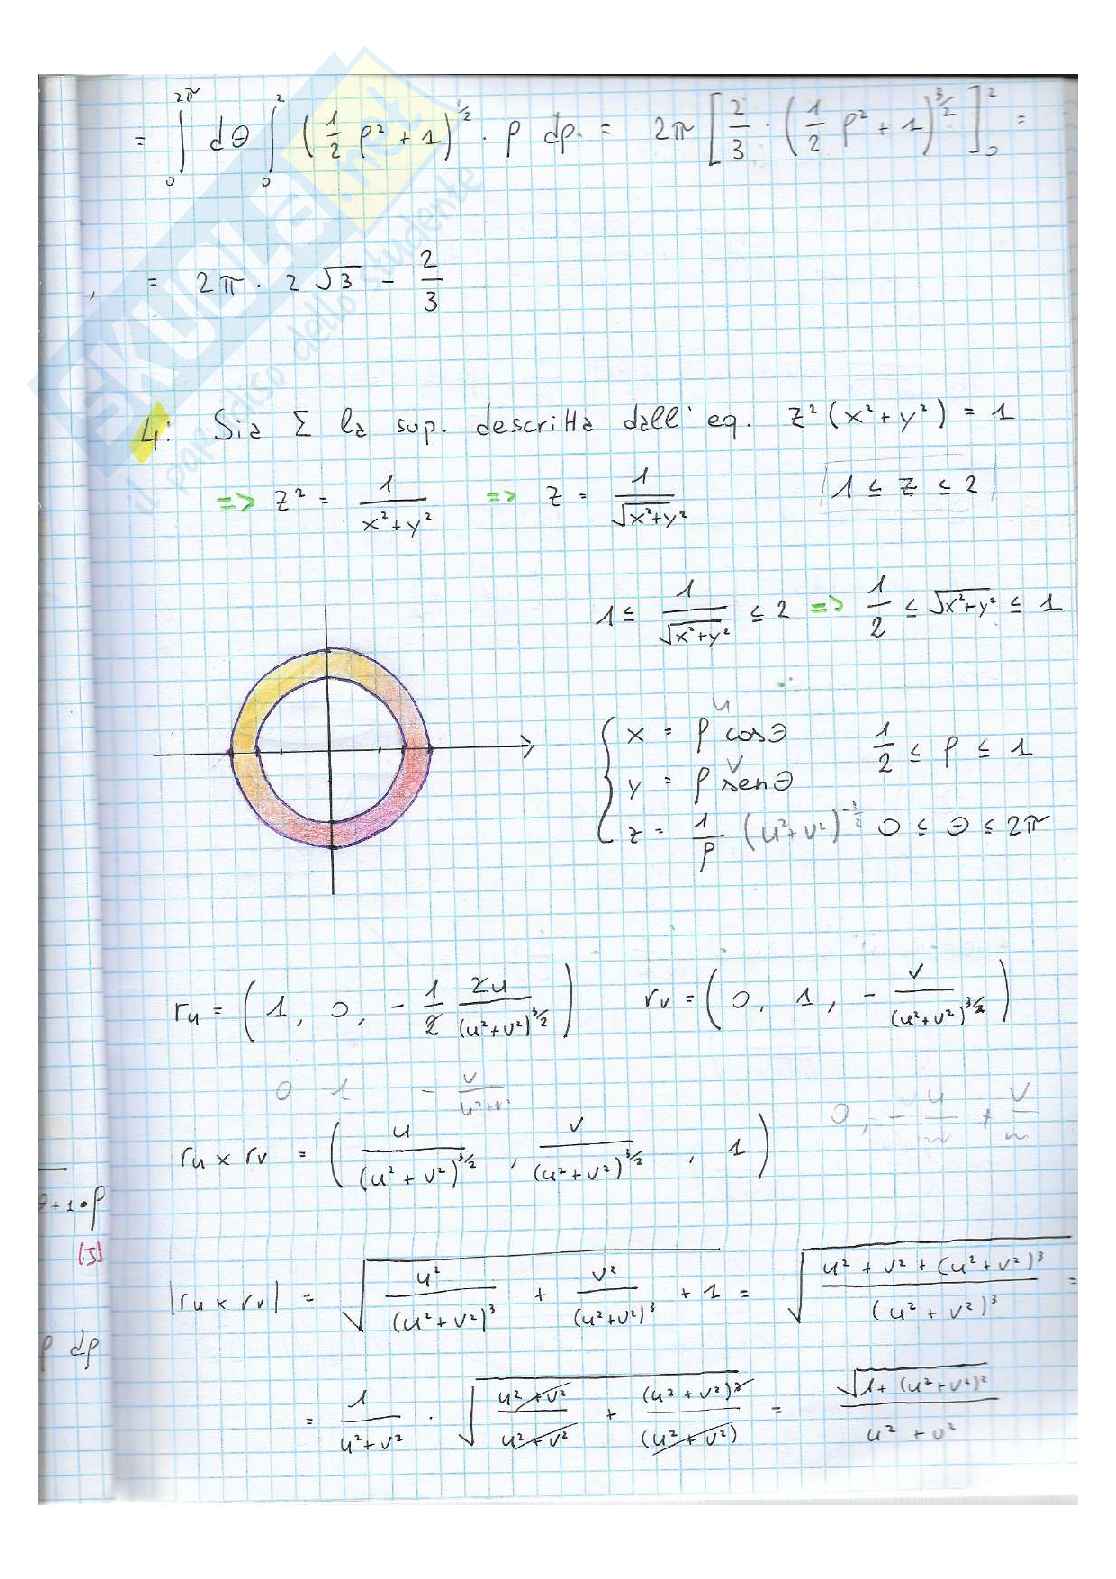 = ∫₀^2π dθ ∫₀^2 (1/2 ρ² + 1)^1/2 · ρ dρ. = 2π [2/3 · (1/2 ρ² + 1)^3/2]₀^2 =
= 2π · 2√3 - 2/3
SKUOLA.net
il paradiso dello studente
4: Sia Σ la sup. descritta dall' eq. z²(x²+y²) = 1
=> z² = 1/(x²+y²) => z = 1/√(x²+y²) 1 ≤ z ≤ 2
1 ≤ 1/√(x²+y²) ≤ 2 => 1/2 ≤ √(x²+y²) ≤ 1
u
{ x = ρ cosθ 1/2 ≤ ρ ≤ 1
v
y = ρ senθ
z = 1/ρ (u²+v²)^-1/2 0 ≤ θ ≤ 2π
ru = (1, 0, - 1/2 2u/(u²+v²)^3/2) rv = (0, 1, - v/(u²+v²)^3/2)
0 1 - v/(u²+v²)
0, - u/ + v/
ru × rv = (u/(u²+v²)^3/2, v/(u²+v²)^3/2, 1)
+1·ρ
(5)
|ru × rv| = √(u²/(u²+v²)³ + v²/(u²+v²)³ + 1) = √((u² + v² + (u²+v²)³)/(u²+v²)³) =
ρ dρ
= 1/(u²+v²) · √((u²+v²)/(u²+v²) + (u²+v²)³/(u²+v²)) = √(1+(u²+v²)²)/(u²+v²)